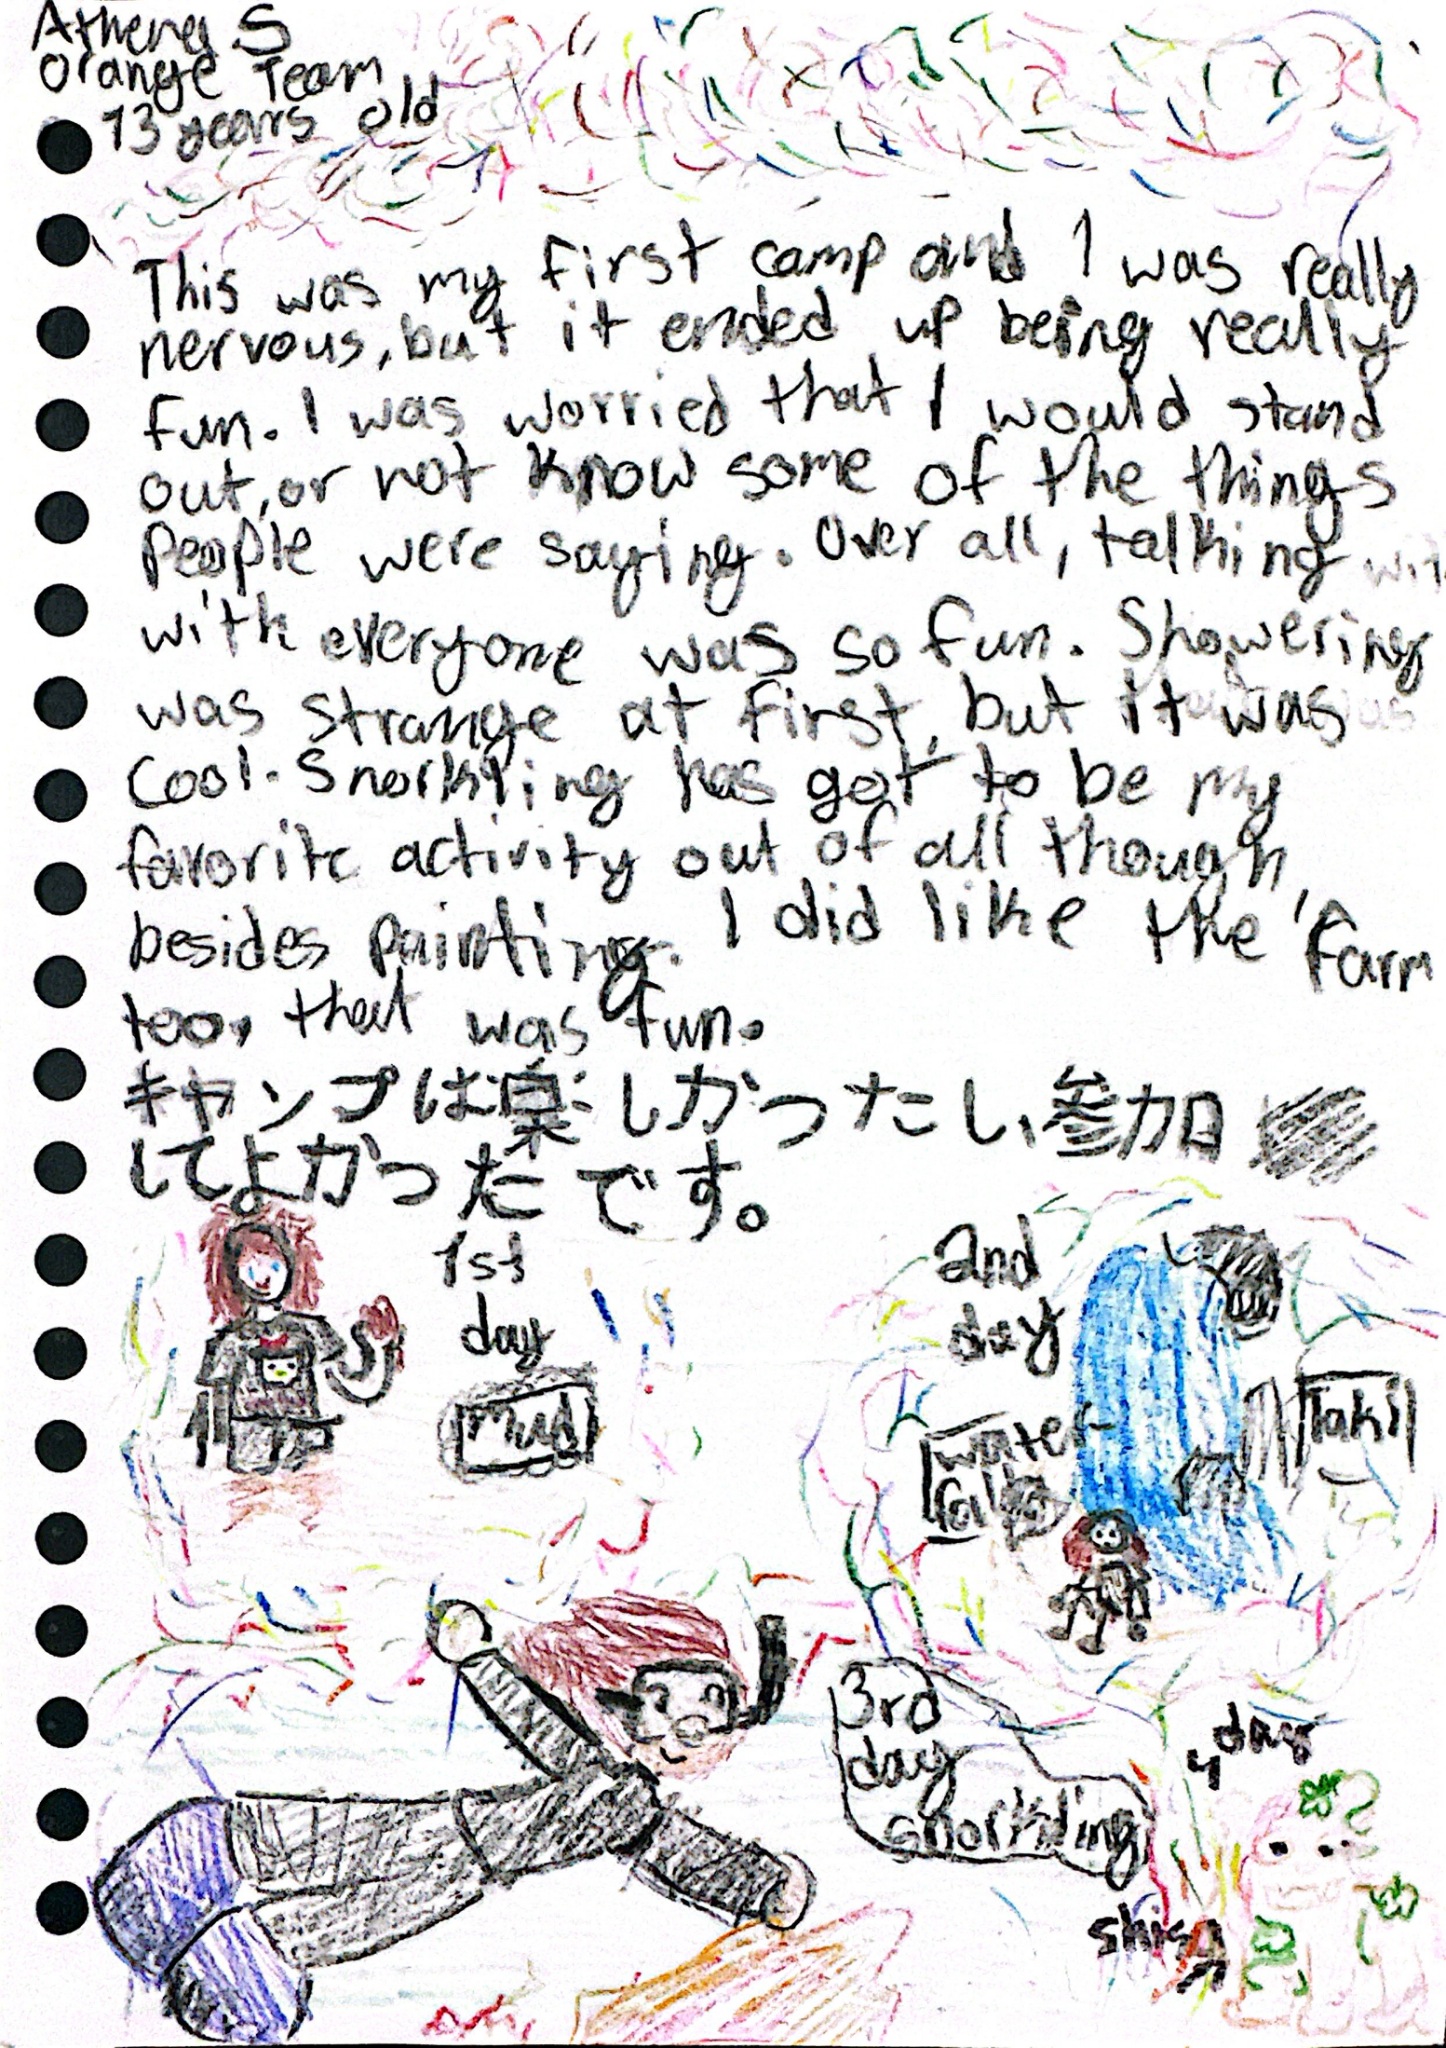 Athena S
Orange Team
13 years old
This was my first camp and I was really
nervous, but it ended up being really
fun. I was worried that I would stand
out, or not know some of the things
people were saying. Over all, talking wit
with everyone was so fun. Showering
was strange at first, but it was
cool. Snorkling has got to be my
favorite activity out of all though,
besides painting. I did like the farm
too, that was fun.
キャンプは楽しかったし、参加
してよかったです。
1st
day
Mud
2nd
day
water
falls
Taki
3rd
day
snorkling
4 day
shisa